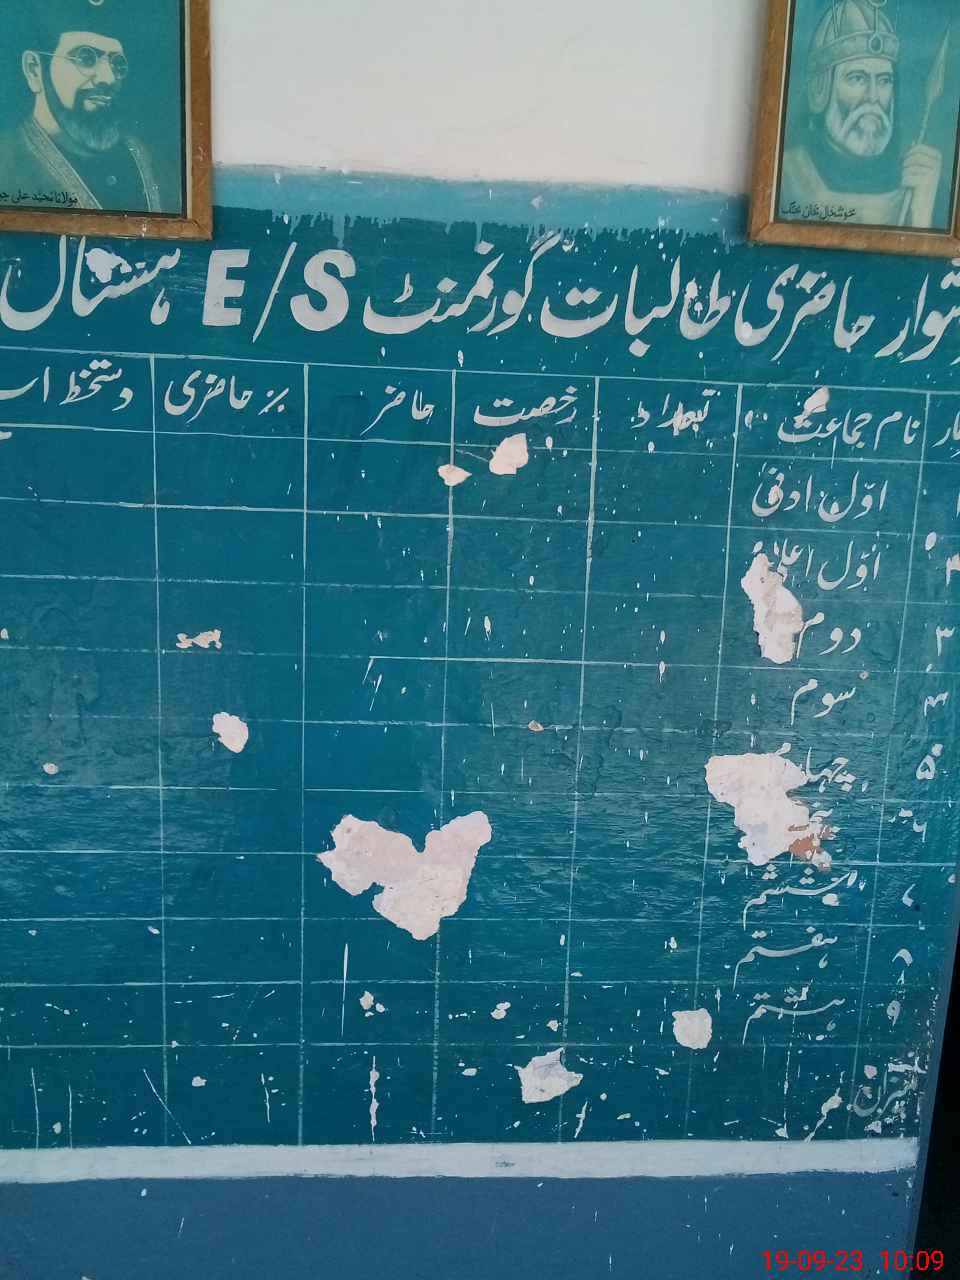 مولانا محمد علی
خوشحال خان خٹک
حاضری طالبات گورنمنٹ E/S ہسنال
نام جماعت تعداد رخصت حاضر ٪ حاضری دستخط
۱ اوّل ادنیٰ
۲ اوّل اعلیٰ
۳ دوم
۴ سوم
۵ چہارم
۶
۷ ششم
۸ ہفتم
۹ ہشتم
میزان
19-09-23 10:09